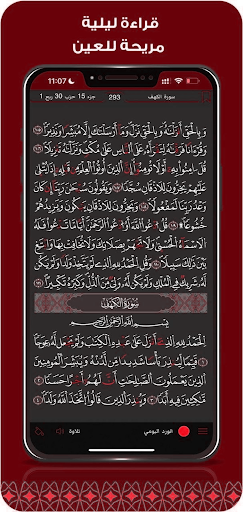 قراءة ليلية
مريحة للعين
11:07
سورة الكهف
293
جزء 15 حزب 30 ربع 1
وَبِالْحَقِّ أَنزَلْنَٰهُ وَبِالْحَقِّ نَزَلَ وَمَا أَرْسَلْنَٰكَ إِلَّا مُبَشِّرًا وَنَذِيرًا ١٠٥
وَقُرْءَانًا فَرَقْنَٰهُ لِتَقْرَأَهُ عَلَى النَّاسِ عَلَىٰ مُكْثٍ وَنَزَّلْنَٰهُ تَنزِيلًا ١٠٦
قُلْ ءَامِنُوا بِهِ أَوْ لَا تُؤْمِنُوا إِنَّ الَّذِينَ أُوتُوا الْعِلْمَ مِن قَبْلِهِ إِذَا يُتْلَىٰ
عَلَيْهِمْ يَخِرُّونَ لِلْأَذْقَانِ سُجَّدًا ١٠٧ وَيَقُولُونَ سُبْحَٰنَ رَبِّنَا إِن كَانَ
وَعْدُ رَبِّنَا لَمَفْعُولًا ١٠٨ وَيَخِرُّونَ لِلْأَذْقَانِ يَبْكُونَ وَيَزِيدُهُمْ
خُشُوعًا ١٠٩ قُلِ ادْعُوا اللَّهَ أَوِ ادْعُوا الرَّحْمَٰنَ أَيًّا مَّا تَدْعُوا فَلَهُ
الْأَسْمَاءُ الْحُسْنَىٰ وَلَا تَجْهَرْ بِصَلَاتِكَ وَلَا تُخَافِتْ بِهَا وَابْتَغِ
بَيْنَ ذَٰلِكَ سَبِيلًا ١١٠ وَقُلِ الْحَمْدُ لِلَّهِ الَّذِي لَمْ يَتَّخِذْ وَلَدًا وَلَمْ يَكُن لَّهُ
شَرِيكٌ فِي الْمُلْكِ وَلَمْ يَكُن لَّهُ وَلِيٌّ مِّنَ الذُّلِّ وَكَبِّرْهُ تَكْبِيرًا ١١١
سُورَةُ الكَهْفِ
بِسْمِ اللَّهِ الرَّحْمَٰنِ الرَّحِيمِ
الْحَمْدُ لِلَّهِ الَّذِي أَنزَلَ عَلَىٰ عَبْدِهِ الْكِتَٰبَ وَلَمْ يَجْعَل لَّهُ عِوَجًا ١
قَيِّمًا لِّيُنذِرَ بَأْسًا شَدِيدًا مِّن لَّدُنْهُ وَيُبَشِّرَ الْمُؤْمِنِينَ
الَّذِينَ يَعْمَلُونَ الصَّٰلِحَٰتِ أَنَّ لَهُمْ أَجْرًا حَسَنًا ٢
مَّٰكِثِينَ فِيهِ أَبَدًا ٣ وَيُنذِرَ الَّذِينَ قَالُوا اتَّخَذَ اللَّهُ وَلَدًا ٤
الورد اليومي
تلاوة